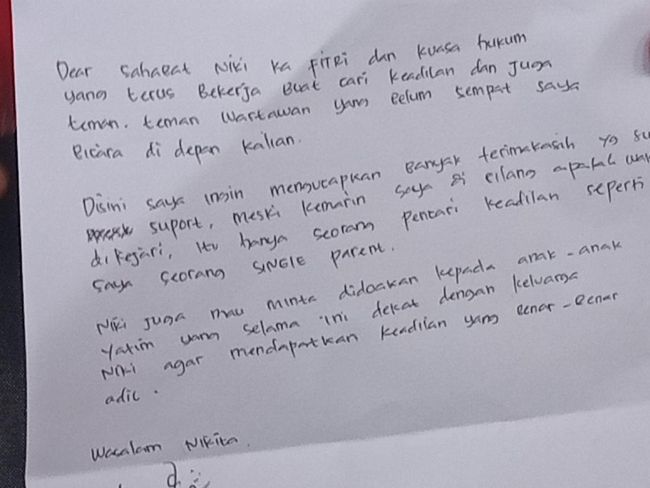 Dear sahabat Niki ka Fitri dan kuasa hukum
yang terus bekerja buat cari keadilan dan juga
teman. teman wartawan yang belum sempat saya
bicara di depan kalian.
Disini saya ingin mengucapkan banyak terimakasih yg su
suport, meski kemarin saya di bilang apakah wa
di kejari, itu hanya seorang pencari keadilan seperti
saya seorang SINGLE parent.
Niki juga mau minta didoakan kepada anak-anak
yatim yang selama ini dekat dengan keluarga
Niki agar mendapatkan keadilan yang benar-benar
adil.
Wasalam Nikita.